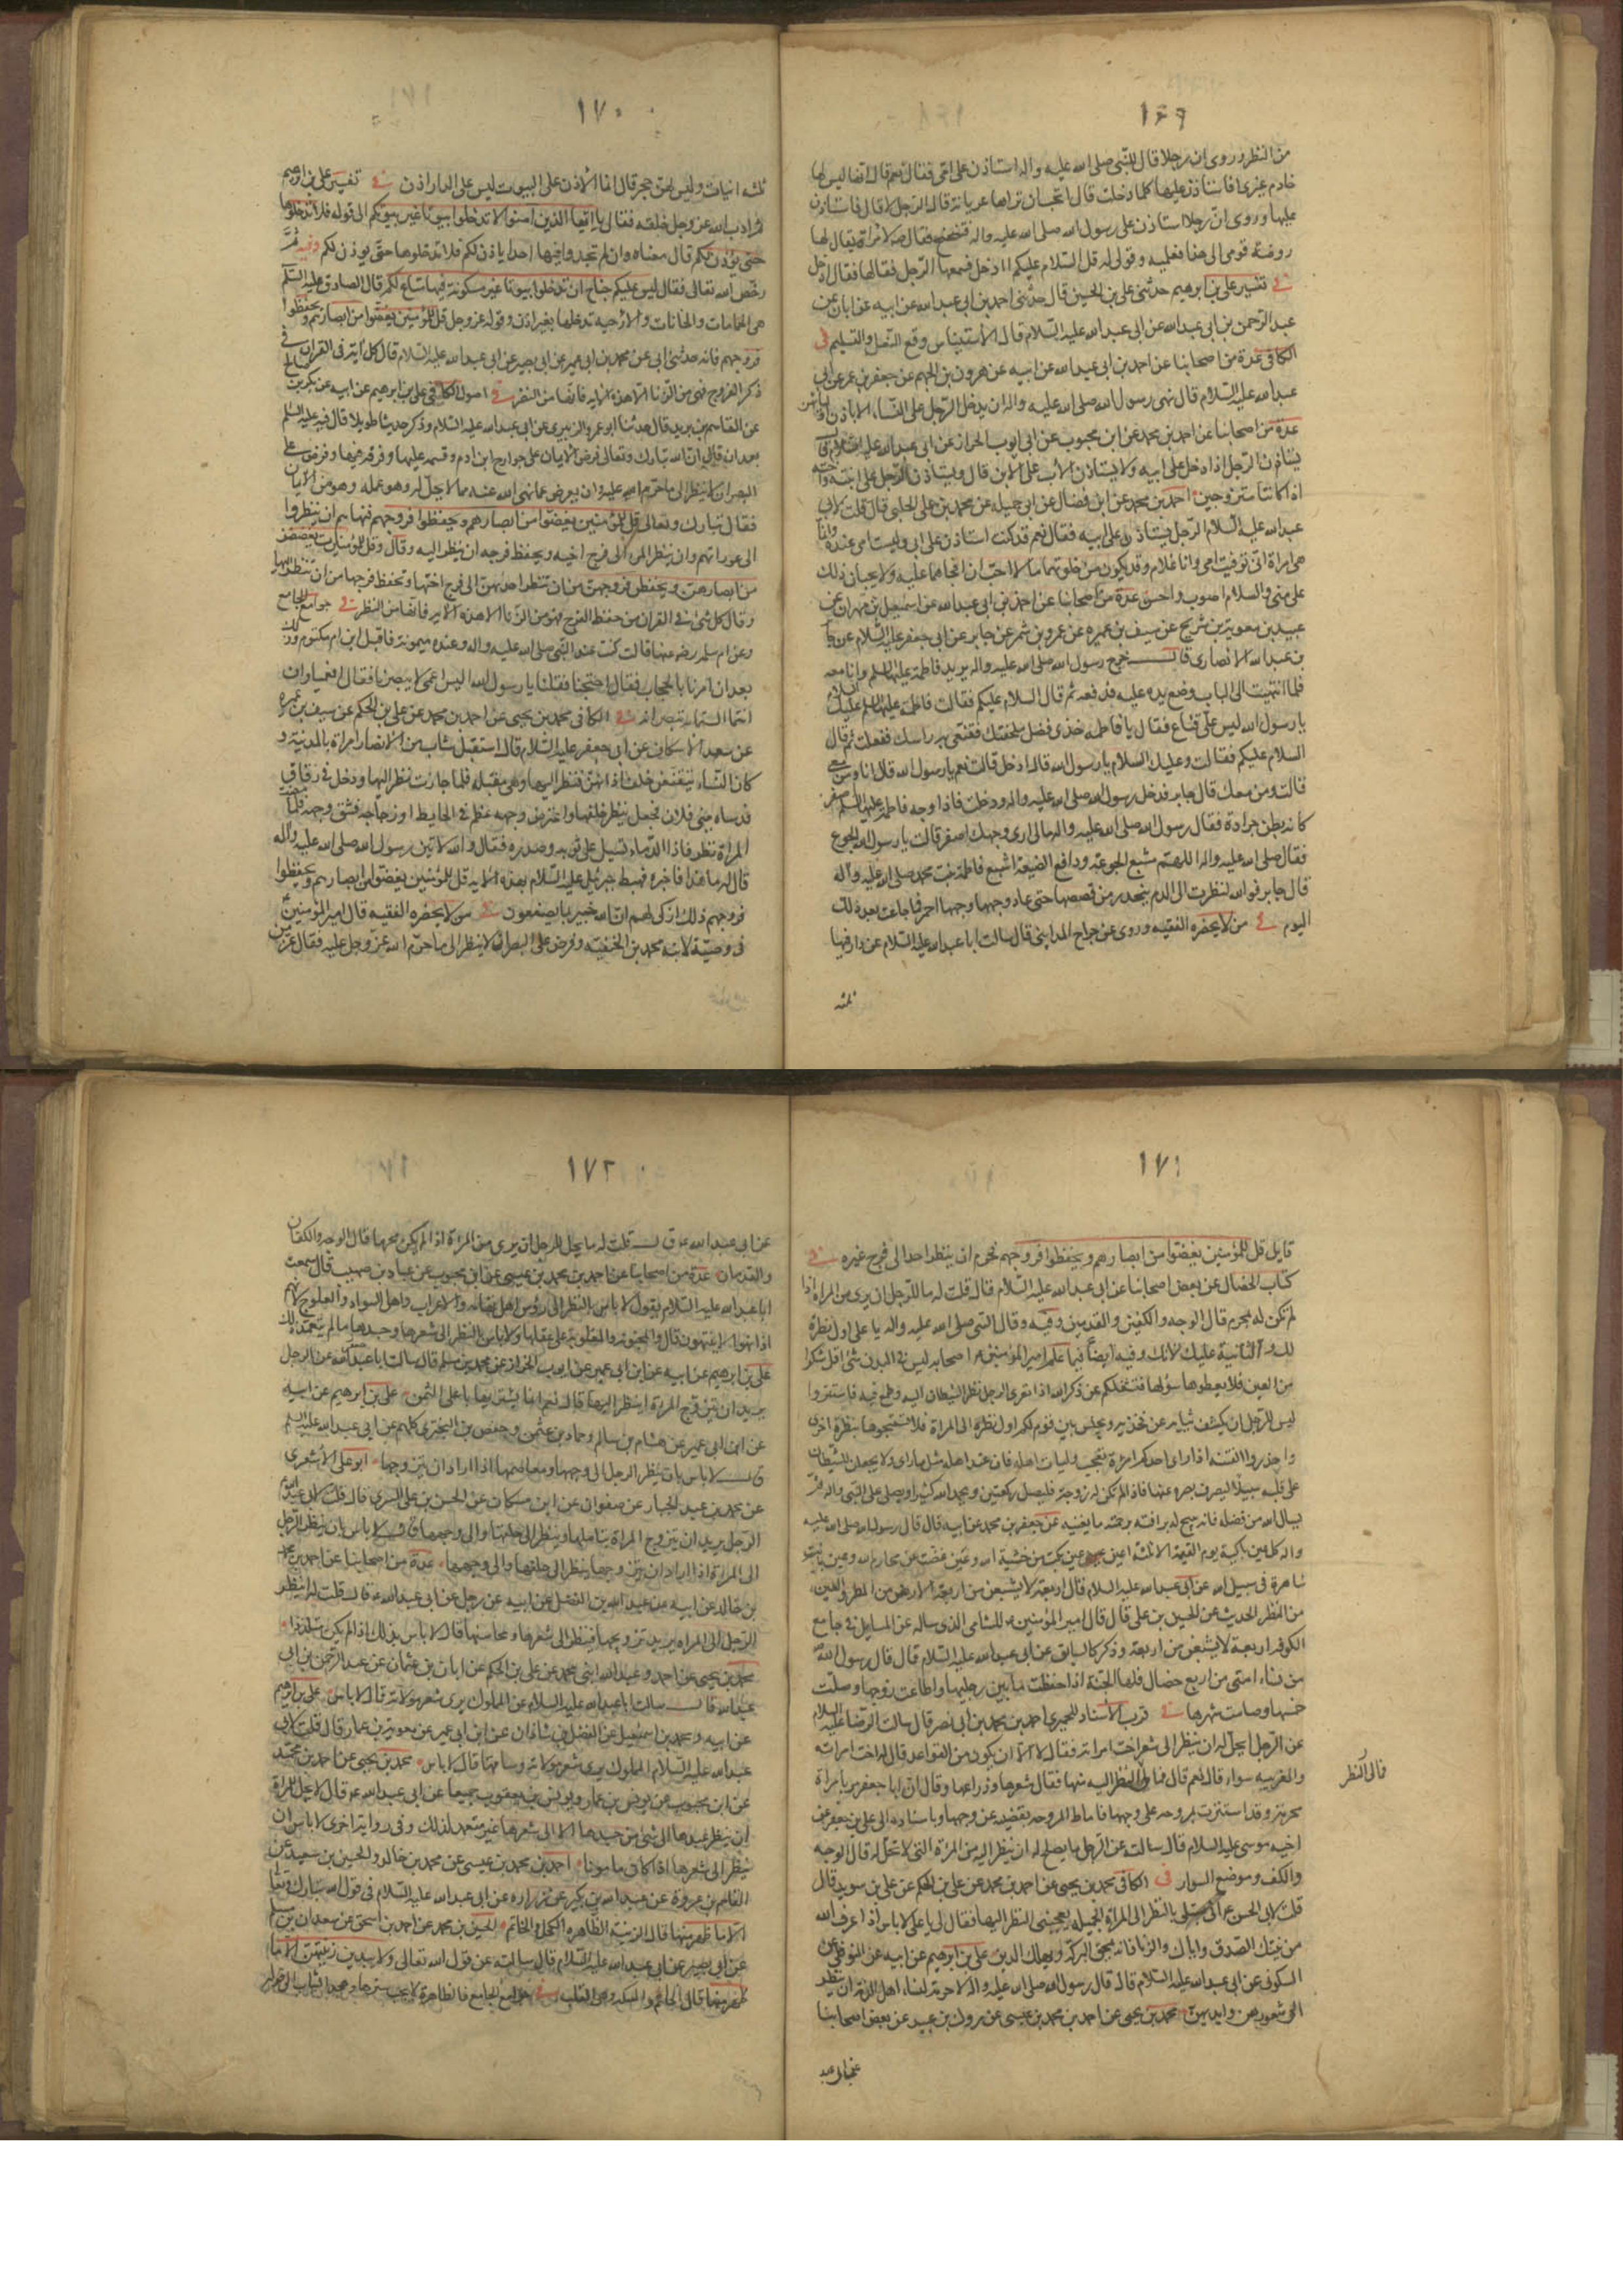 ١٦٩
من النظر وروى ان رجلا قال للنبي صلى الله عليه واله استاذن على امي فقال نعم قال انها ليس لها
خادم غيري افاستاذن عليها كلما دخلت قال اتحب ان تراها عريانة قال الرجل لا قال فاستاذن
عليها وروى ان رجلا استاذن على رسول الله صلى الله عليه واله فتنحنح فقال صه لامراة يقال لها
روضة قومي الى هذا فعلميه وقولي له قل السلام عليكم اادخل فسمعها الرجل فقالها فقال ادخل
في تفسير علي بن ابرهيم حدثني علي بن الحسين قال حدثني احمد بن ابي عبد الله عن ابيه عن ابان عن
عبد الرحمن بن ابي عبد الله عن ابي عبد الله عليه السلام قال الاستيناس وقع النعل والتسليم في
الكافي عدة من اصحابنا عن احمد بن ابي عبد الله عن ابيه عن هرون بن الجهم عن جعفر بن عمر عن ابي
عبد الله عليه السلام قال نهى رسول الله صلى الله عليه واله ان يدخل الرجل على النساء الا باذن
عدة من اصحابنا عن احمد بن محمد عن ابن محبوب عن ابي ايوب الخراز عن ابي عبد الله عليه السلام قال
يستاذن الرجل اذا دخل على ابيه ولا يستاذن الاب على الابن قال ويستاذن الرجل على ابنته واخته
اذا كانتا متزوجين احمد بن محمد عن ابن فضال عن ابي جميله عن محمد بن علي الحلبي قال قلت لابي
عبد الله عليه السلام الرجل يستاذن على ابيه فقال نعم قد كنت استاذن على ابي وليست امي عنده وانما
هي امراة ابي توفيت امي وانا غلام وقد يكون من خلوتهما ما لا احب ان افجاهما عليه ولا يحبان ذلك
على مني والسلام اصوب واحسن عدة من اصحابنا عن احمد بن ابي عبد الله عن اسمعيل بن مهران عن
عبيد بن معوية بن شريح عن سيف بن عميرة عن عمرو بن شمر عن جابر عن ابي جعفر عليه السلام عن جابر
بن عبد الله الانصاري قال خرج رسول الله صلى الله عليه واله يريد فاطمة عليها السلم وانا معه
فلما انتهيت الى الباب وضع يده عليه فدفعه ثم قال السلام عليكم فقالت فاطمة عليها السلم عليك السلام
يا رسول الله ليس علي قناع فقال يا فاطمة خذي فضل ملحفتك فقنعي به راسك ففعلت ثم قال
السلام عليكم فقالت وعليك السلام يا رسول الله قال ادخل قالت نعم يا رسول الله قال انا ومن معي
قالت ومن معك قال جابر فدخل رسول الله صلى الله عليه واله ودخلت فاذا وجه فاطمة عليها السلم اصفر
كانه بطن جرادة فقال رسول الله صلى الله عليه واله مالي ارى وجهك اصفر قالت يا رسول الله الجوع
فقال صلى الله عليه واله اللهم مشبع الجوعة ودافع الضيعة اشبع فاطمة بنت محمد صلى الله عليه وآله
قال جابر فوالله لنظرت الى الدم ينحدر من قصصها حتى عاد وجهها احمر فما جاعت بعد ذلك
اليوم في من لا يحضره الفقيه وروى عن جراح المدايني قال سالت ابا عبد الله عليه السلام عن دار فيها
ثلثة
١٧٠
ثلثة ابيات وليس لهن حجر قال انما الاذن على البيوت ليس على الدار اذن في تفسير علي بن ابرهيم
ثم ادب الله عز وجل خلقه فقال يا ايها الذين آمنوا لا تدخلوا بيوتا غير بيوتكم الى قوله فلا تدخلوها
حتى يؤذن لكم قال معناه وان لم تجدوا فيها احدا ياذن لكم فلا تدخلوها حتى يوذن لكم وفيه ثم
رخص الله تعالى فقال ليس عليكم جناح ان تدخلوا بيوتا غير مسكونة فيها متاع لكم قال الصادق عليه السلم
هي الحمامات والخانات والارحية تدخلها بغير اذن وقوله عز وجل قل للمؤمنين يغضوا من ابصارهم ويحفظوا
فروجهم فانه حدثني ابي عن محمد بن ابي عمير عن ابي بصير عن ابي عبد الله عليه السلام قال كل اية في القران في
ذكر الفروج فهي من الزنا الا هذه الاية فانها من النظر في اصول الكافي علي بن ابرهيم عن ابيه عن بكر بن صالح
عن القاسم بن بريد قال حدثنا ابو عمرو الزبيري عن ابي عبد الله عليه السلام وذكر حديثا طويلا قال فيه عليه السلم
بعد ان قال ان الله تبارك وتعالى فرض الايمان على جوارح ابن ادم وقسمه عليها وفرقه فيها وفرض على
البصر ان لا ينظر الى ما حرم الله عليه وان يعرض عما نهى الله عنه مما لا يحل له وهو عمله وهو من الايمان
فقال تبارك وتعالى قل للمؤمنين يغضوا من ابصارهم ويحفظوا فروجهم فنهاهم ان ينظروا
الى عوراتهم وان ينظر المرء الى فرج اخيه ويحفظ فرجه ان ينظر اليه وقال وقل للمؤمنات يغضضن
من ابصارهن ويحفظن فروجهن من ان تنظر احديهن الى فرج اختها وتحفظ فرجها من ان تنظر اليها
وقال كل شئ في القران من حفظ الفرج فهو من الزنا الا هذه الاية فانها من النظر في جوامع الجامع
وعن ام سلمة رضه عنها قالت كنت عند النبي صلى الله عليه واله وعنده ميمونة فاقبل ابن ام مكتوم وذلك
بعد ان امرنا بالحجاب فقال احتجبا فقلنا يا رسول الله اليس اعمى لا يبصرنا فقال افعمياوان
انتما الستما تبصرانه في الكافي محمد بن يحيى عن احمد بن محمد عن علي بن الحكم عن سيف بن عميرة
عن سعد الاسكاف عن ابي جعفر عليه السلام قال استقبل شاب من الانصار امراة بالمدينة و
كان النساء يتقنعن خلف اذانهن فنظر اليها وهي مقبلة فلما جازت نظر اليها ودخل في زقاق
قد سماه ببني فلان فجعل ينظر خلفها واعترض وجهه عظم في الحايط او زجاجه فشق وجهه فلما مضت
المراة نظر فاذا الدماء تسيل على ثوبه وصدره فقال والله لاتين رسول الله صلى الله عليه وآله
قال له ما هذا فاخبره فهبط جبرئيل عليه السلام بهذه الاية قل للمؤمنين يغضوا من ابصارهم ويحفظوا
فروجهم ذلك ازكى لهم ان الله خبير بما يصنعون في من لا يحضره الفقيه قال امير المؤمنين
في وصيته لابنه محمد بن الحنفية وفرض على البصر ان لا ينظر الى ما حرم الله عز وجل عليه فقال عز من
١٧١
قايل قل للمؤمنين يغضوا من ابصارهم ويحفظوا فروجهم فحرم ان ينظر احد الى فرج غيره في
كتاب الخصال عن بعض اصحابنا عن ابي عبد الله عليه السلام قال قلت له ما للرجل ان يرى من المراة اذا
لم تكن له بمحرم قال الوجه والكفين والقدمين وفيه وقال النبي صلى الله عليه واله يا علي اول نظرة
لك والثانية عليك لا لك وفيه ايضا فيما علم امير المؤمنين اصحابه ليس في البدن شئ اقل شكرا
من العين فلا تعطوها سؤلها فتشغلكم عن ذكر الله اذا تعرى الرجل نظر الشيطان اليه وطمع فيه فاستتروا
ليس للرجل ان يكشف ثيابه عن فخذيه ويجلس بين قوم لكم اول نظرة الى المراة فلا تتبعوها بنظرة اخرى
واحذروا الفتنة اذا راى احدكم امراة تعجبه فليات اهله فان عند اهله مثل ما راى ولا يجعلن للشيطان
على قلبه سبيلا ليصرف بصره عنها فاذا لم تكن له زوجة فليصل ركعتين ويحمد الله كثيرا ويصلي على النبي واله ثم
يسال الله من فضله فانه يبيح له برافته ورحمته ما يغنيه عن جعفر بن محمد عن ابيه قال قال رسول الله صلى الله عليه
واله كل عين باكية يوم القيمة الا ثلثة اعين عين بكت من خشية الله وعين غضت عن محارم الله وعين باتت
ساهرة في سبيل الله عن ابي عبد الله عليه السلام قال اربعة لا يشبعن من اربعة الارض من المطر والعين
من النظر الحديث عن الحسين بن علي قال قال امير المؤمنين للشامي الذي ساله عن المسايل في جامع
الكوفه اربعة لا يشبعن من اربعة وذكر كالسابق عن ابي عبد الله عليه السلام قال قال رسول الله
من نساء امتي من اربع خصال فلها الجنة اذا حفظت ما بين رجليها واطاعت زوجها وصلت
خمسها وصامت شهرها في قرب الاسناد للحميري احمد بن محمد بن ابي نصر قال سالت الرضا عليه السلام
عن الرجل ايحل له ان ينظر الى شعر اخت امراته فقال لا الا ان يكون من القواعد قال له اخت امراته
والغريبة سواء قال نعم قال فمالي من النظر اليه منها فقال شعرها وذراعها وقال ان ابا جعفر مر بامراة
محرمة وقد استترت بمروحة على وجهها فاماط المروحة بقضيبه عن وجهها وباسناده الى علي بن جعفر عن
اخيه موسى عليه السلام قال سالت عن الرجل ما يصلح له ان ينظر اليه من المراة التي لا تحل له قال الوجه
والكف وموضع السوار في الكافي محمد بن يحيى عن احمد بن محمد عن علي بن الحكم عن علي بن سويد قال
قلت لابي الحسن اني مبتلى بالنظر الى المراة الجميلة يعجبني النظر اليها فقال لي يا علي لا باس اذا عرف الله
من نيتك الصدق واياك والزنا فانه يمحق البركة ويهلك الدين علي بن ابرهيم عن ابيه عن النوفلي عن
السكوني عن ابي عبد الله عليه السلام قال قال رسول الله صلى الله عليه واله لا حرمة لنساء اهل الذمة ان ينظر
الى شعورهن وايديهن محمد بن يحيى عن احمد بن محمد بن عيسى عن مروك بن عبيد عن بعض اصحابنا
فمالي النظر
عن ابي عبد
١٧٢
عن ابي عبد الله ع قال قلت له ما يحل للرجل ان يرى من المراة اذا لم يكن محرما قال الوجه والكفان
والقدمان عدة من اصحابنا عن احمد بن محمد بن عيسى عن ابن محبوب عن عباد بن صهيب قال سمعت
ابا عبد الله عليه السلام يقول لا باس بالنظر الى رؤس اهل تهامة والاعراب واهل السواد والعلوج لانهم
اذا نهوا لا ينتهون قال والمجنونة والمغلوبة على عقلها ولا باس بالنظر الى شعرها وجسدها ما لم يتعمد ذلك
علي بن ابرهيم عن ابيه عن ابن ابي عمير عن ابي ايوب الخزاز عن محمد بن مسلم قال سالت ابا عبد الله عن الرجل
يريد ان يتزوج المراة اينظر اليها قال نعم انما يشتريها باغلى الثمن علي بن ابرهيم عن ابيه
عن ابن ابي عمير عن هشام بن سالم وحماد بن عثمن وحفص بن البختري كلهم عن ابي عبد الله عليه السلم
قال لا باس بان ينظر الرجل الى وجهها ومعاصمها اذا اراد ان يتزوجها ابو علي الاشعري
عن محمد بن عبد الجبار عن صفوان عن ابن مسكان عن الحسن بن علي السري قال قلت لابي عبد الله
الرجل يريد ان يتزوج المراة يتاملها وينظر الى خلفها والى وجهها قال لا باس بان ينظر الرجل
الى المراة اذا اراد ان يتزوجها ينظر الى خلفها والى وجهها عدة من اصحابنا عن احمد بن محمد
بن خالد عن ابيه عن عبد الله بن الفضل عن ابيه عن رجل عن ابي عبد الله ع قال قلت له اينظر
الرجل الى المراه يريد تزويجها فينظر الى شعرها ومحاسنها قال لا باس بذلك اذا لم يكن متلذذا
محمد بن يحيى عن احمد وعبد الله ابني محمد عن علي بن الحكم عن ابان بن عثمان عن عبد الرحمن بن ابي
عبد الله قال سالت ابا عبد الله عليه السلام عن المملوك يرى شعر مولاته قال لا باس علي بن ابرهيم
عن ابيه ومحمد بن اسمعيل عن الفضل بن شاذان عن ابن ابي عمير عن معوية بن عمار قال قلت لابي
عبد الله عليه السلام المملوك يرى شعر مولاته وساقها قال لا باس محمد بن يحيى عن احمد بن محمد
عن ابن محبوب عن يونس بن عمار ويونس بن يعقوب جميعا عن ابي عبد الله ع قال لا يحل للمراة
ان ينظر عبدها الى شئ من جسدها الا الى شعرها غير متعمد لذلك وفي رواية اخرى لا باس ان
ينظر الى شعرها اذا كان مامونا احمد بن محمد بن عيسى عن محمد بن خالد والحسين بن سعيد عن
القاسم بن عروة عن عبد الله بن بكير عن زراره عن ابي عبد الله عليه السلام في قول الله تبارك وتعالى
الا ما ظهر منها قال الزينة الظاهره الكحل والخاتم الحسين بن محمد عن احمد بن اسحق عن سعدان بن مسلم
عن ابي بصير عن ابي عبد الله عليه السلام قال سالته عن قول الله تعالى ولا يبدين زينتهن الا ما
ظهر منها قال الخاتم والمسكة وهي القلب في جوامع الجامع فالظاهرة لا يجب سترها وهي الثياب